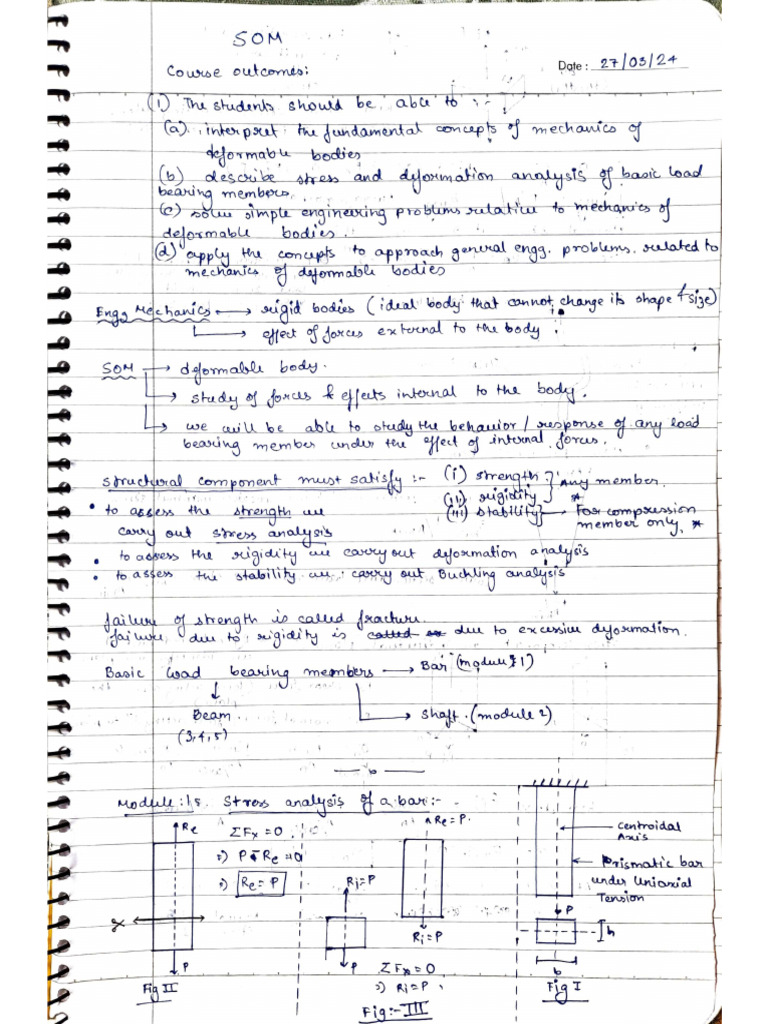 SOM
Date : 27/03/24
Course outcomes:
(1) The students should be able to :-
(a) interpret the fundamental concepts of mechanics of
deformable bodies
(b) describe stress and deformation analysis of basic load
bearing members.
(c) solve simple engineering problems relative to mechanics of
deformable bodies.
(d) apply the concepts to approach general engg. problems related to
mechanics of deformable bodies
Engg Mechanics → rigid bodies (ideal body that cannot change its shape & size)
→ effect of forces external to the body.
SOM → deformable body.
→ study of forces & effects internal to the body.
→ we will be able to study the behavior / response of any load
bearing member under the effect of internal forces.
structural component must satisfy :- (i) strength } Any member.
(ii) rigidity
• to assess the strength we (iii) stability } → For compression
carry out stress analysis member only. *
• to assess the rigidity we carry out deformation analysis
• to assess the stability we carry out Buckling analysis
failure of strength is called fracture.
failure due to rigidity is called due to excessive deformation.
Basic load bearing members → Bar (module 1)
↓
Beam → shaft. (module 2)
(3,4,5)
Module:1 Stress analysis of a bar:-
Re
ΣFx = 0
⇒) P - Re = 0
⇒) Re = P
P
Fig II
Re = P
Ri = P
Ri = P
P
ΣFx = 0
⇒) Ri = P.
Fig:-III
centroidal
Axis
Prismatic bar
under Uniaxial
Tension
P
h
b
Fig I